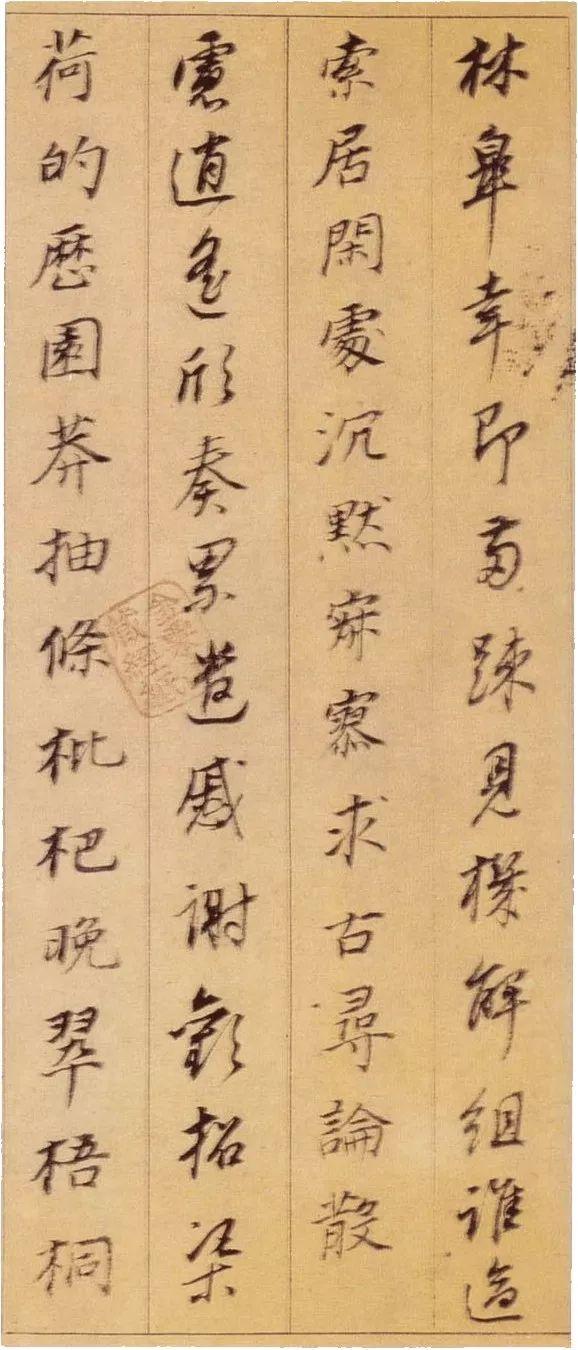 林皋幸即兩踈見機解組誰逼
索居閑處沉默寂寥求古尋論散
慮逍遙欣奏累遣慼謝歡招渠
荷的歷園莽抽條枇杷晚翠梧桐